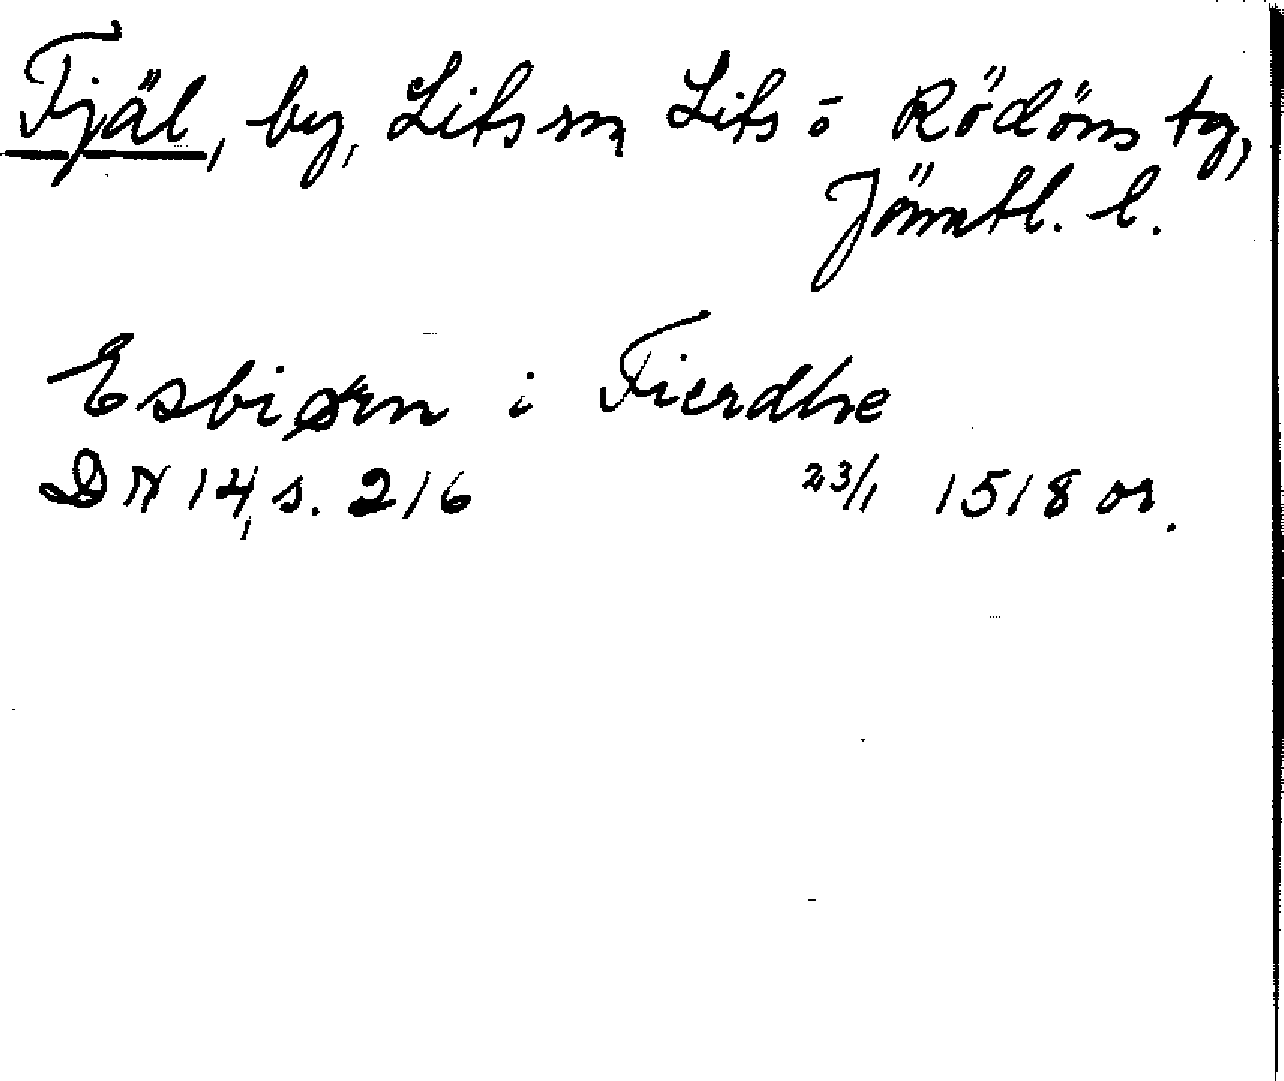 Fjäl, by, Lits sn Lits o Rödöns tg,
Jämtl. l.
Esbiørn i Fierdhe
DN 14, s. 216 23/1 1518 or.